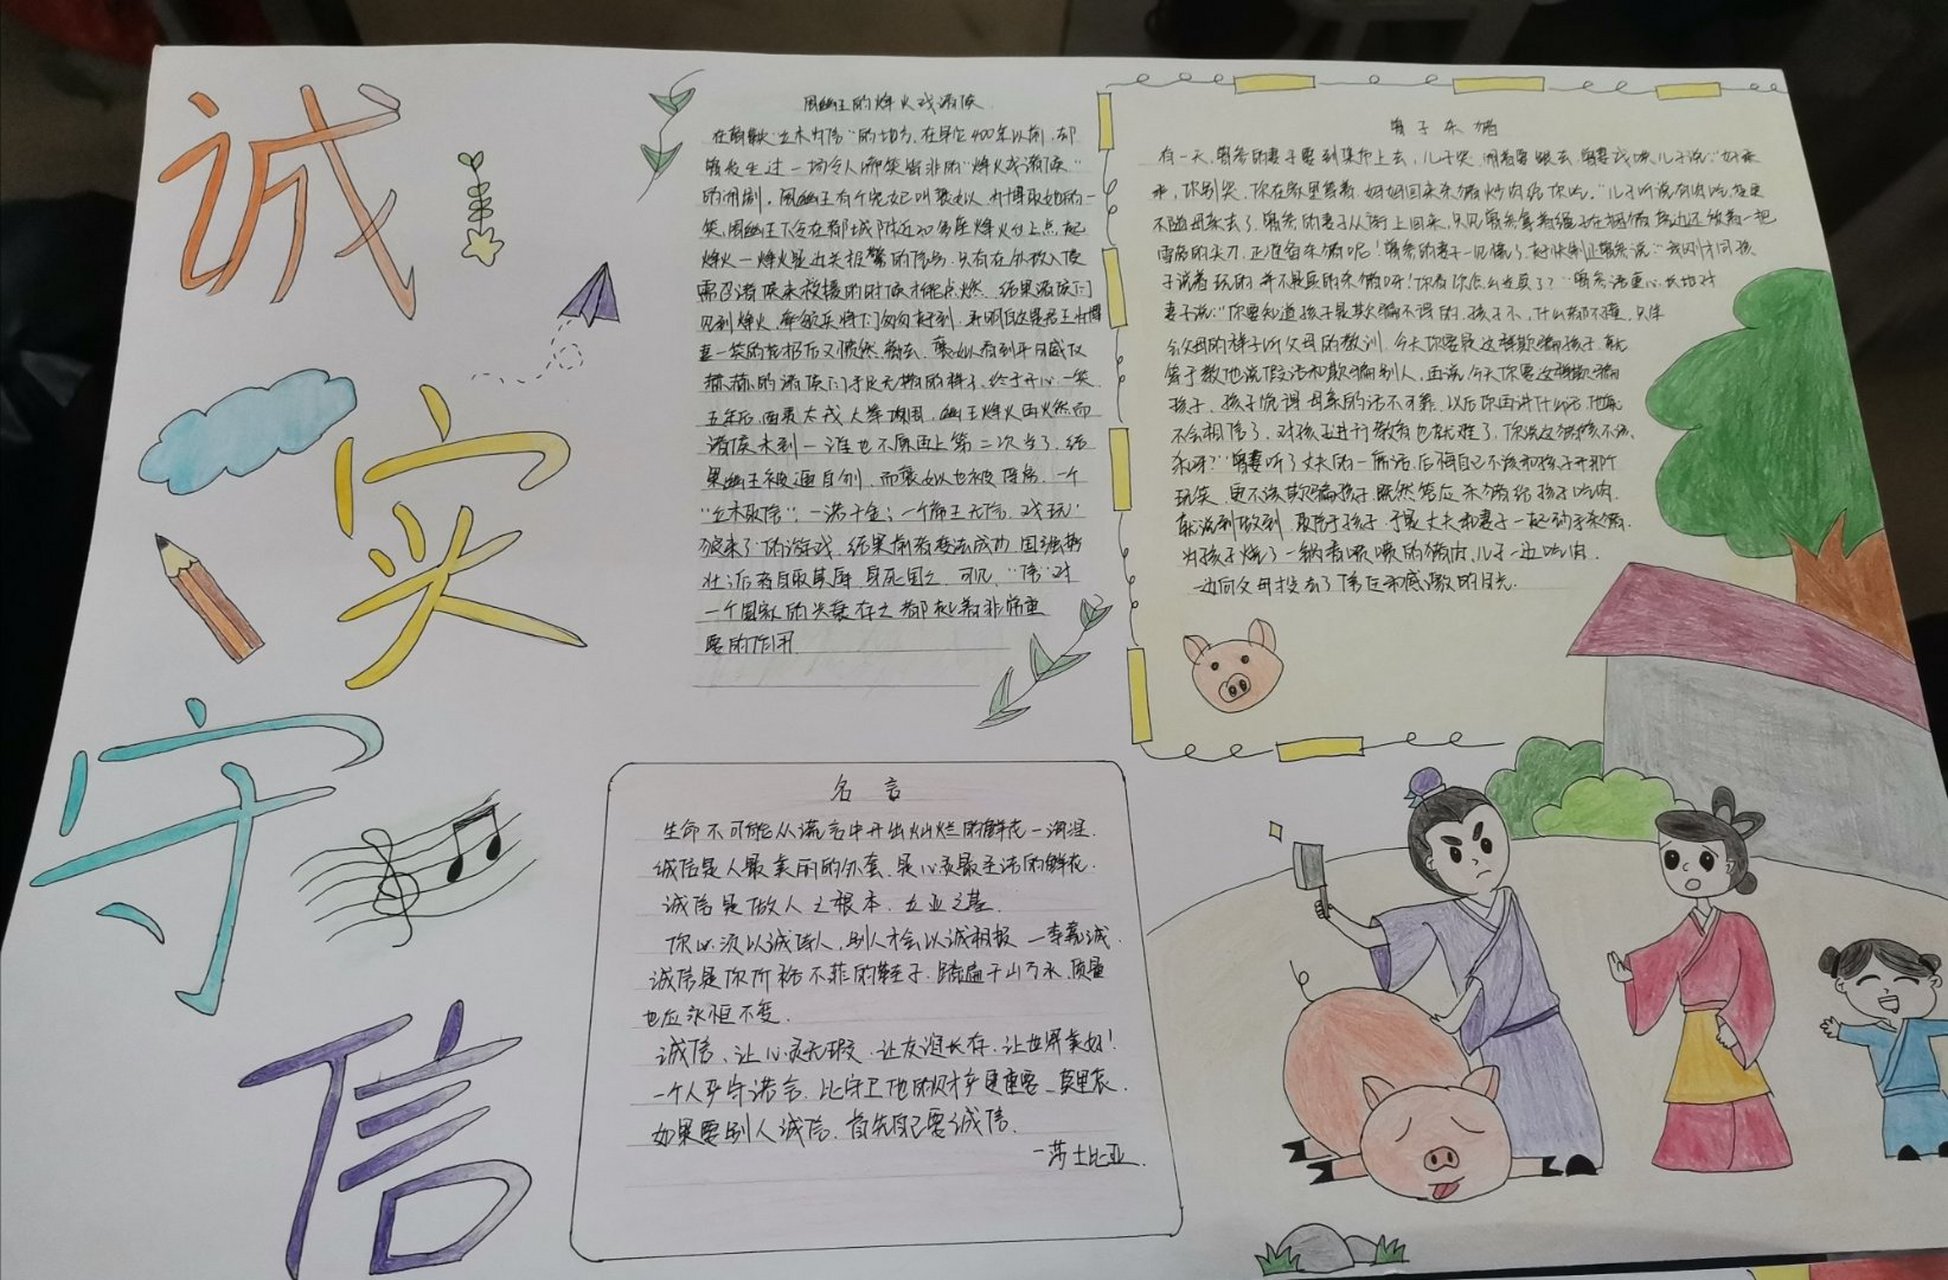 诚
实
守
信
周幽王的烽火戏诸侯
在商鞅“立木为信”的地方，在早它400年以前，却
曾发生过一场令人啼笑皆非的“烽火戏诸侯”
的闹剧。周幽王有个宠妃叫褒姒，为博取她的一
笑，周幽王下令在都城附近20多座烽火台上点起
烽火—烽火是边关报警的信号，只有在外敌入侵
需召诸侯来救援的时候才能点燃。结果诸侯们
见到烽火，率领兵将们匆匆赶到，弄明白这是君王为博
妻一笑的花招后又愤然离去。褒姒看到平日威仪
赫赫的诸侯们手足无措的样子，终于开心一笑。
五年后，西夷太戎大举攻周，幽王烽火再燃而
诸侯未到—谁也不愿再上第二次当了。结
果幽王被逼自刎，而褒姒也被俘虏。一个
“立木取信”，一诺千金；一个帝王无信，戏玩“
狼来了”的游戏。结果前者变法成功，国强势
壮；后者自取其辱，身死国亡。可见，“信”对
一个国家的兴衰存亡都起着非常重
要的作用
曾子杀猪
有一天，曾参的妻子要到集市上去，儿子哭闹着要跟去，曾妻戏哄儿子说：“好乖
乖，你别哭，你在家里等着，妈妈回来杀猪炒肉给你吃。”儿子听说有肉吃，
不随母亲去了。曾参的妻子从街上回来，只见曾参拿着绳子在捆猪，旁边还放着一把
雪亮的尖刀，正准备杀猪呢！曾参的妻子一见慌了，赶快制止曾参说：“我刚才同孩
子说着玩的，并不是真的杀猪呀！你看你怎么当真了？”曾参语重心长地对
妻子说：“你要知道孩子是欺骗不得的，孩子小，什么都不懂，只
会父母的样子，听父母的教训。今天你要是这样欺骗孩子，就
等于教他说假话和欺骗别人，再说，今天你要这样欺骗
孩子，孩子觉得母亲的话不可靠，以后你再讲什么话，他就
不会相信了，对孩子进行教育也就难了，你说这猪该不该
杀呀？”曾妻听了丈夫的一席话，后悔自己不该和孩子开那个
玩笑，更不该欺骗孩子，既然答应杀猪给孩子吃肉，
就说到做到，取信于孩子，于是丈夫和妻子一起动手杀猪，
为孩子烧了一锅香喷喷的猪肉，儿子一边吃肉，
一边向父母投去了信任和感激的目光。
名言
生命不可能从谎言中开出灿烂的鲜花—海涅.
诚信是人最美丽的外套，是心灵最圣洁的鲜花.
诚信是做人之根本，立业之基.
你必须以诚待人，别人才会以诚相报—李嘉诚.
诚信是你价格不菲的鞋子，踏遍千山万水，质量
也应永恒不变.
诚信，让心灵无瑕，让友谊长存，让世界美好！
一个人严守诺言，比守卫他的财产更重要—莫里哀.
如果要别人诚信，首先自己要诚信.
—莎士比亚.